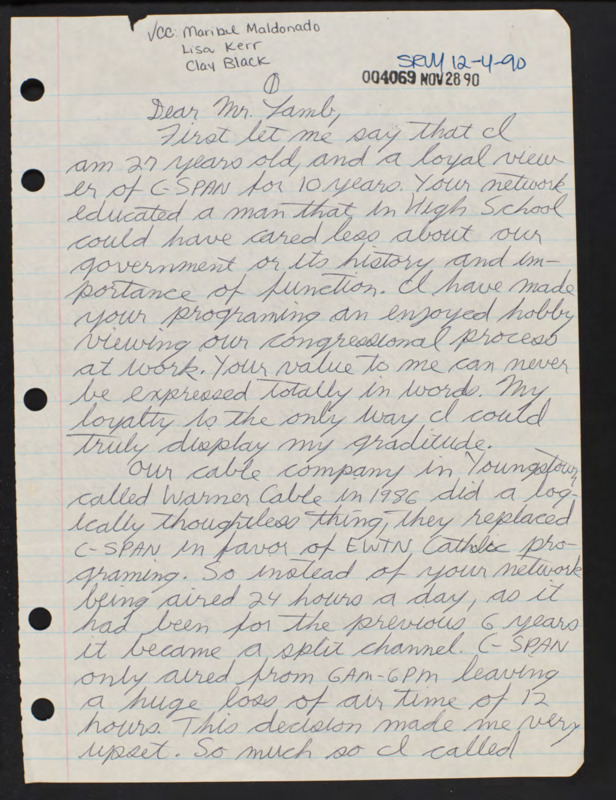 √cc: Maribel Maldonado
Lisa Kerr
Clay Black
SRM 12-4-90
004069 NOV 28 90
1
Dear Mr. Lamb,
First let me say that I
am 27 years old, and a loyal view-
er of C-SPAN for 10 years. Your network
educated a man that in High School
could have cared less about our
government or its history and im-
portance of function. I have made
your programing an enjoyed hobby
viewing our congressional process
at work. Your value to me can never
be expressed totally in words. My
loyalty is the only way I could
truly display my graditude.
Our cable company in Youngstown,
called Warner Cable in 1986 did a log-
ically thoughtless thing, they replaced
C-SPAN in favor of EWTN, Catholic pro-
graming. So instead of your network
being aired 24 hours a day, as it
had been for the previous 6 years
it became a split channel. C-SPAN
only aired from 6AM-6PM leaving
a huge loss of air time of 12
hours. This decision made me very
upset. So much so I called